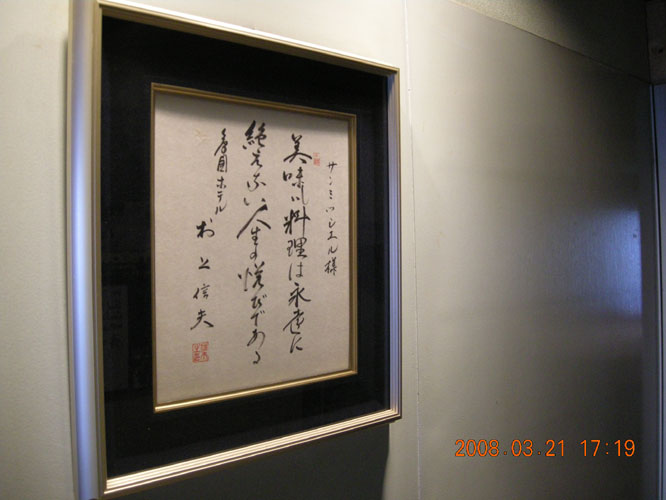 サンミッシェル様
美味しい料理は永遠に
絶えない人生の悦びである
帝国ホテル
村上信夫
2008.03.21 17:19